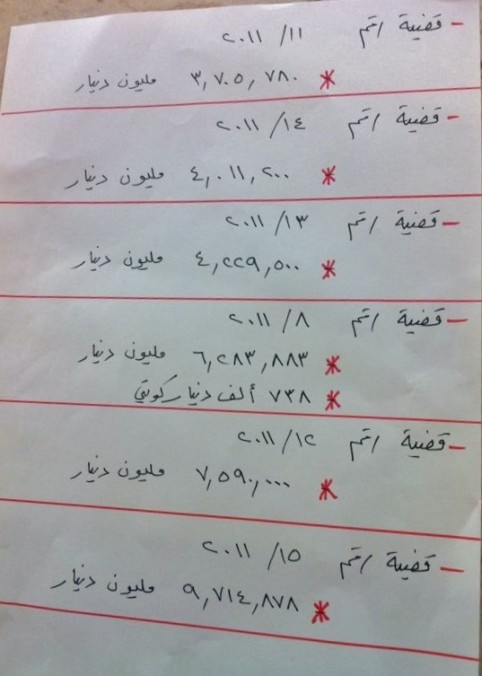 - قضية رقم ١١/ ٢٠١١
* ٣,٧٠٥,٧٨٠ مليون دنيار
- قضية رقم ١٤/ ٢٠١١
* ٤,٠١١,٢٠٠ مليون دنيار
- قضية رقم ١٣/ ٢٠١١
* ٤,٢٢٩,٥٠٠ مليون دنيار
- قضية رقم ٨/ ٢٠١١
* ٦,٢٨٣,٨٨٣ مليون دنيار
* ٧٣٨ ألف دنيار كويتي
- قضية رقم ١٢/ ٢٠١١
* ٧,٥٩٠,٠٠٠ مليون دنيار
- قضية رقم ١٥/ ٢٠١١
* ٩,٧١٤,٨٧٨ مليون دنيار